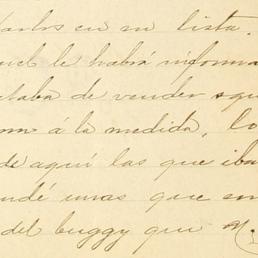 Carlos en su lista.
le habrá informa
taba de vender aqu
á la medida, lo
de aquí las que iba
undé unas que en
del buggy que